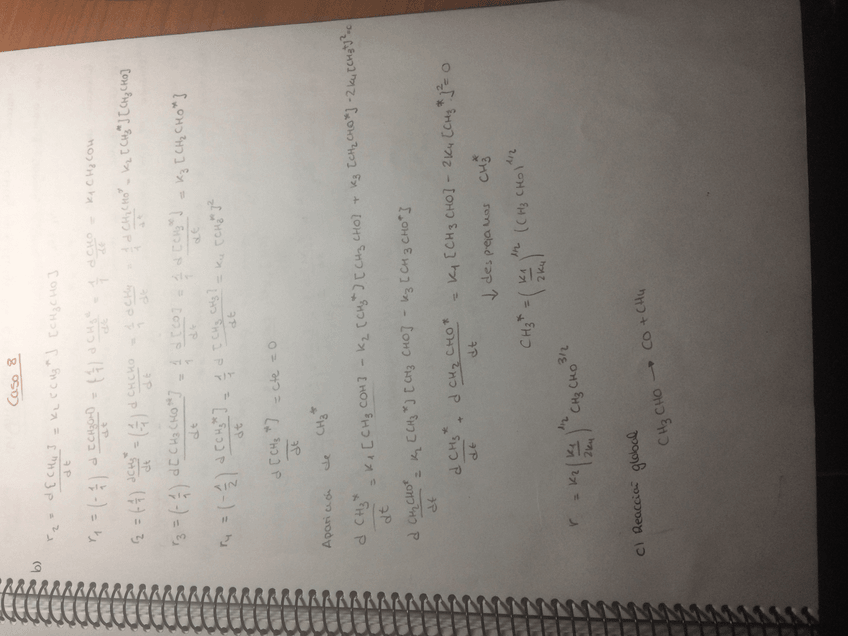 Caso 8
b)
r2 = d[CH4]/dt = K2 [CH3*] [CH3CHO]
r1 = (-1/1) d[CH3CHO]/dt = (1/1) dCH3*/dt = 1/1 dCHO/dt = K1 CH3COH
r2 = (-1/1) dCH3*/dt = (1/1) dCHCHO/dt = 1/1 dCH4/dt = 1/1 dCH2CHO*/dt = K2 [CH3*] [CH3CHO]
r3 = (-1/1) d[CH2CHO*]/dt = 1/1 d[CO]/dt = 1/1 d[CH3*]/dt = K3 [CH2CHO*]
r4 = (-1/2) d[CH3*]/dt = 1/1 d[CH3CH3]/dt = K4 [CH3*]²
d[CH3*]/dt = cte = 0
Aparición de CH3*
d CH3*/dt = K1 [CH3COH] - K2 [CH3*] [CH3CHO] + K3 [CH2CHO*] - 2K4 [CH3*]² = 0
d CH2CHO*/dt = K2 [CH3*] [CH3CHO] - K3 [CH3CHO*]
d CH3*/dt + d CH2CHO*/dt = K1 [CH3CHO] - 2K4 [CH3*]² = 0
↓ despejamos CH3*
CH3* = (K1/2K4)^1/2 (CH3CHO)^1/2
r = K2 (K1/2K4)^1/2 CH3CHO^3/2
c) Reacción global
CH3CHO → CO + CH4